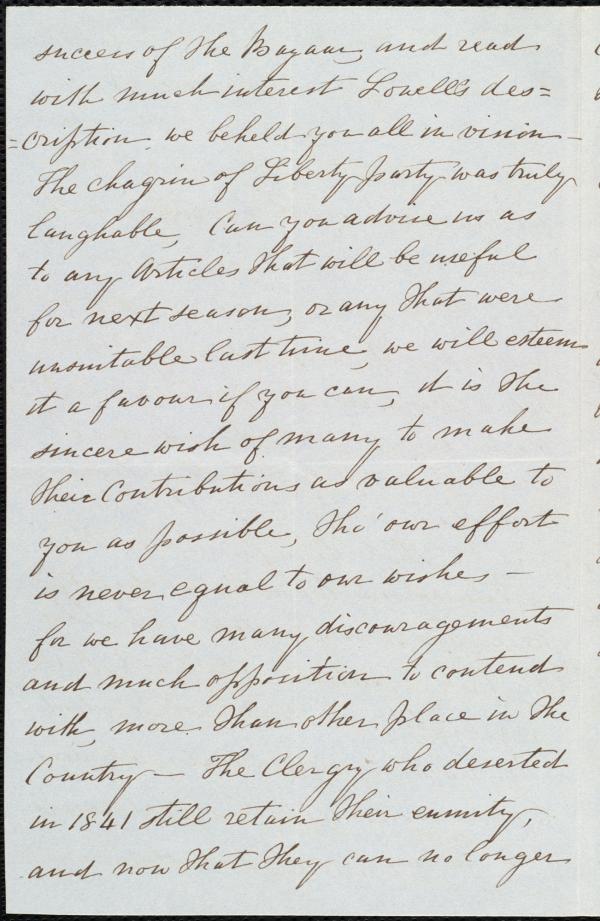 success of the Bazaar, and read
with much interest Lowell's des=
=cription. we beheld you all in vision –
The chagrin of Liberty party was truly
laughable, Can you advise us as
to any Articles that will be useful
for next season, or any that were
unsuitable last time, we will esteem
it a favour if you can, it is the
sincere wish of many to make
their Contributions as valuable to
you as possible, tho' our effort
is never equal to our wishes –
for we have many discouragements
and much opposition to contend
with, more than other place in the
Country – The Clergy who deserted
in 1841 still retain their enmity,
and now that they can no longer